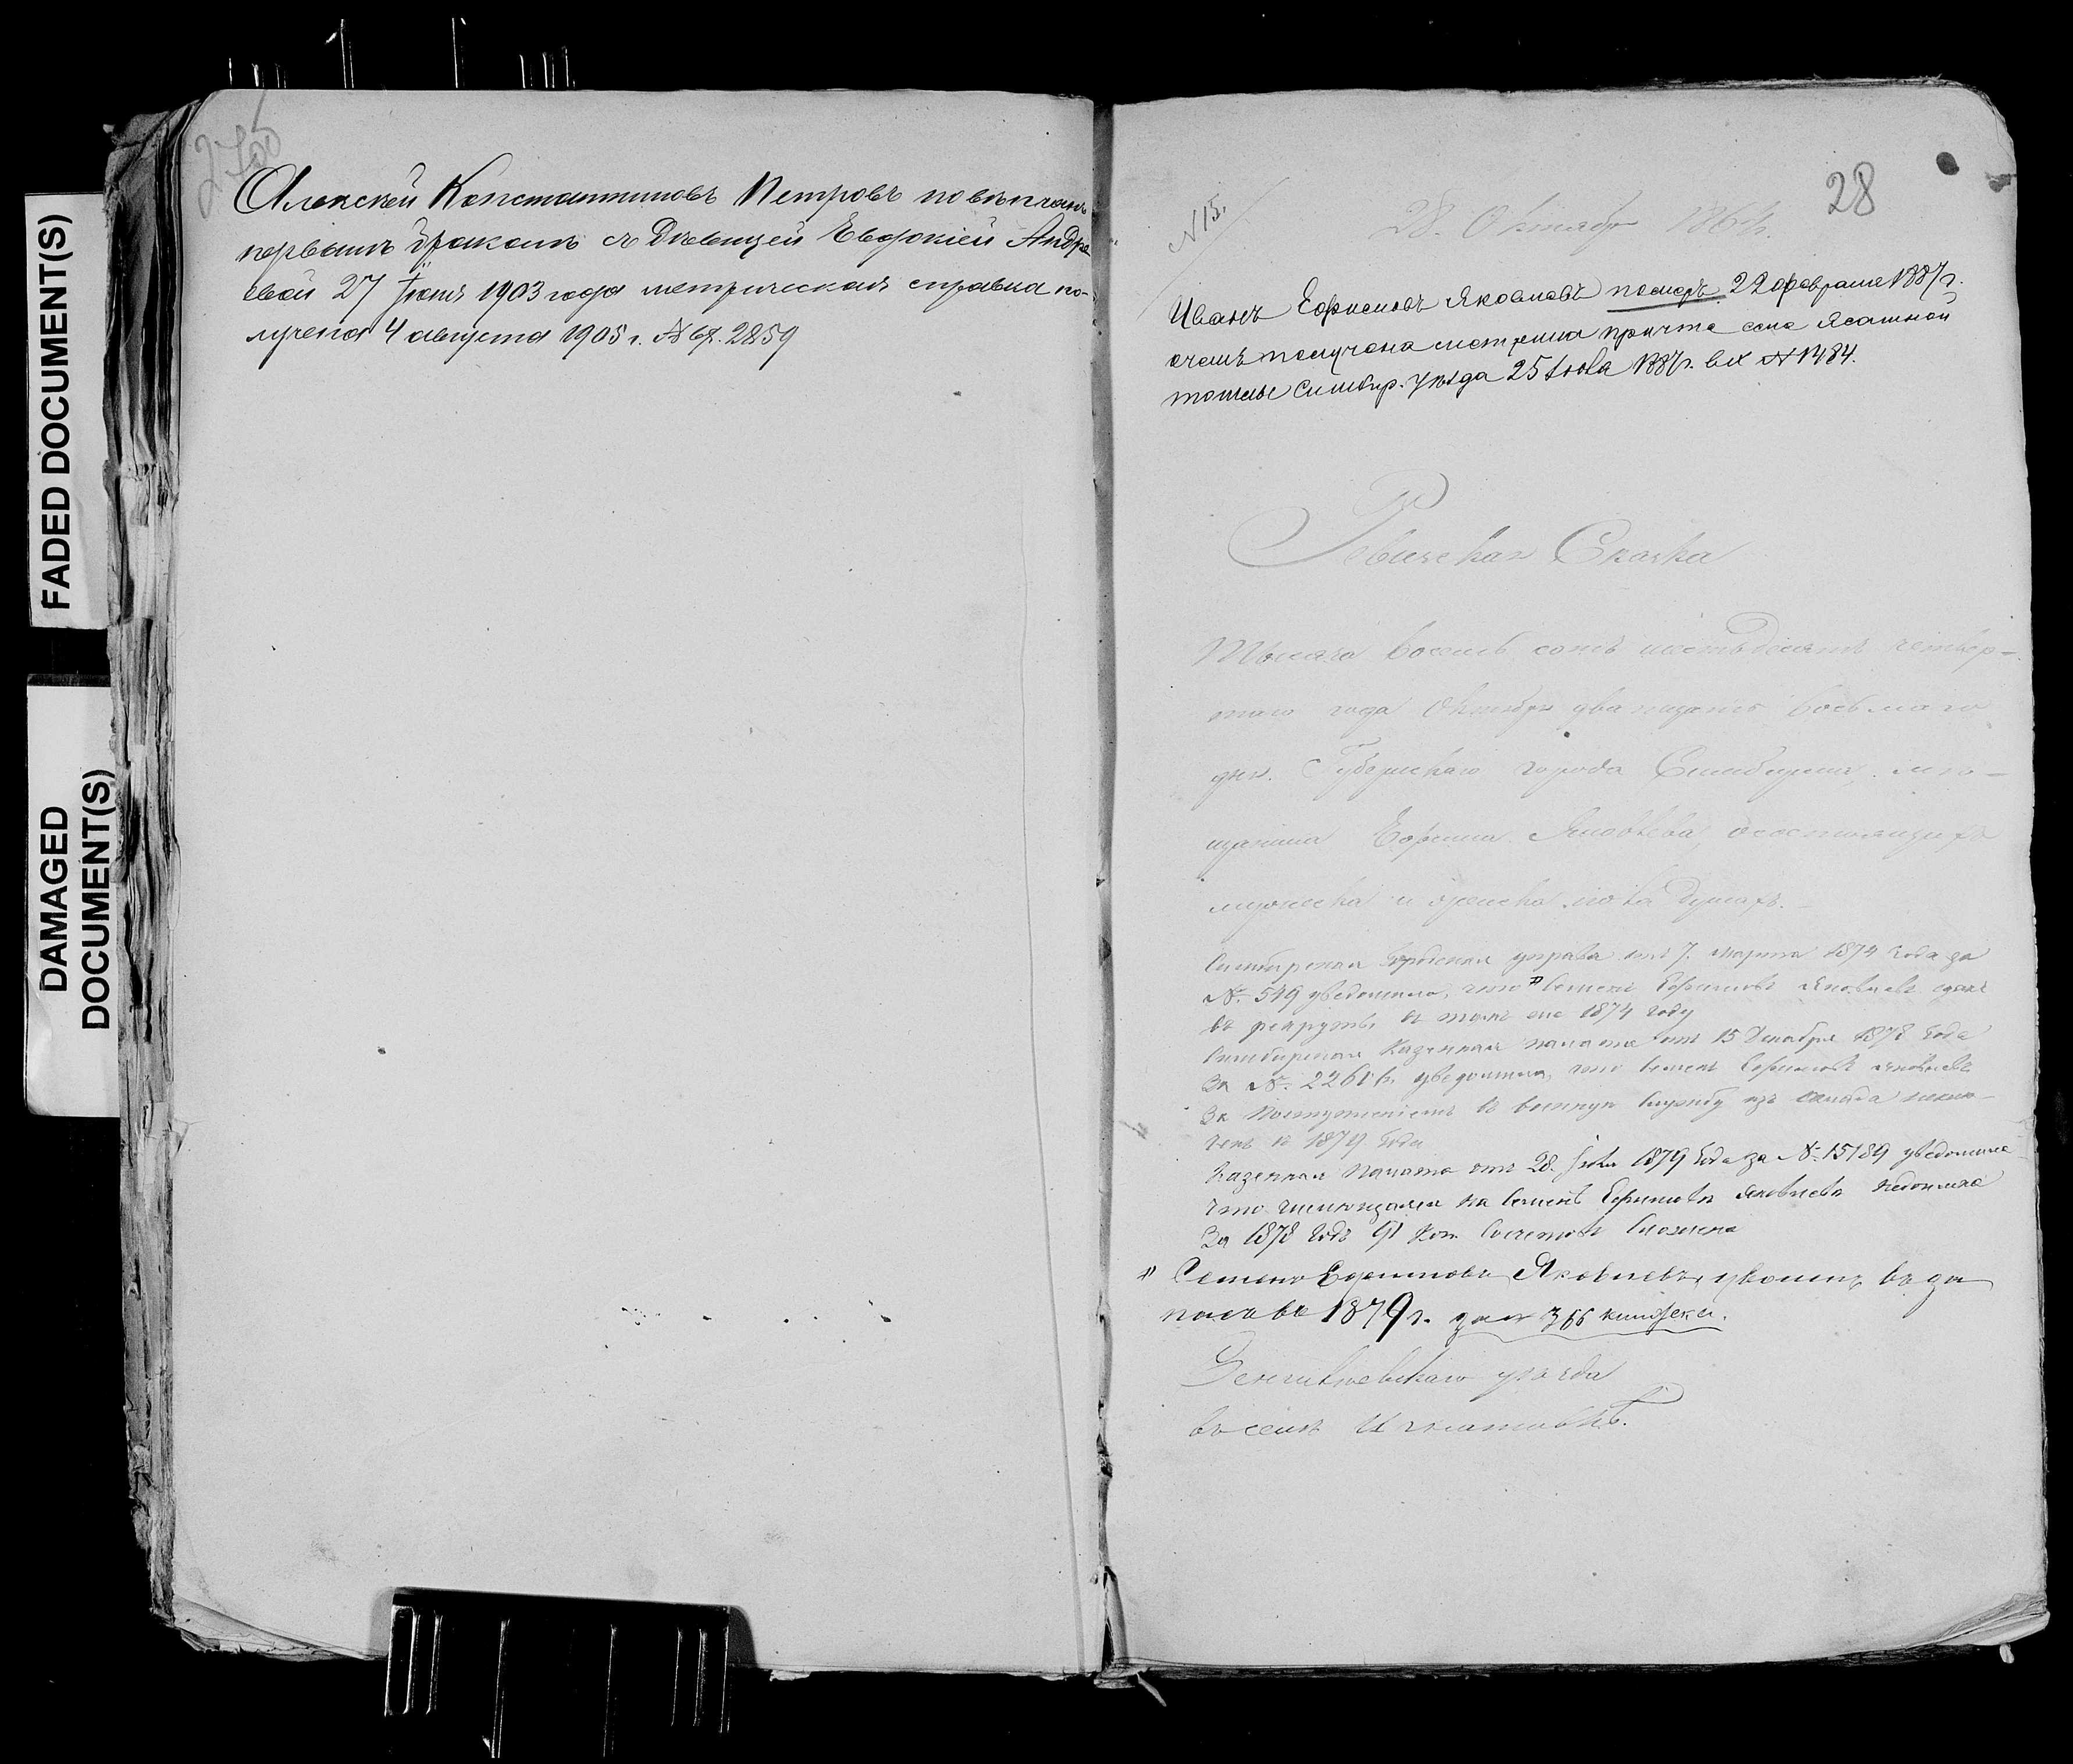 FADED DOCUMENT(S)
DAMAGED
DOCUMENT(S)
Алексей Константиновъ Петровъ повѣнчанъ
первымъ бракомъ съ Дѣвицей Евдокіей Андре
евой 27 Іюня 1903 года метрическая справка по-
лучена 4 августа 1905 г. № 2859
28
N 15.
28. Октября 1864 г.
Иванъ Ефимовъ Яковлевъ померъ 22 февраля 1887 г.
о чемъ получена причта села Ясашной
Ташлы Симбир. уѣзда 25 1887 г. вх № 1484.
Ревизская Сказка
Тысяча восемь сотъ шестьдесятъ четвер-
таго года Октября двадцать восьмаго
дня. Губернскаго города Симбирска, мѣ-
щанина Ефима Яковлева, о состоящихъ
мужеска и женска пола душахъ.
Симбирская Городская управа отъ 7. Марта 1874 года за
№. 549 увѣдомила, что Семенъ Ефимовъ Яковлевъ сданъ
въ рекруты въ томъ же 1874 году
Симбирская Казенная палата отъ 15 Декабря 1878 года
За №. увѣдомила, что Семенъ Ефимовъ Яковлевъ
За поступленіемъ въ военную службу изъ оклада исклю-
ченъ съ 1879 года
Казенная палата отъ 28. 1879 года за №. 15189 увѣдомила
что числющаяся на Семенѣ Ефимовѣ Яковлевѣ недоимка
За 1878 годъ 91 коп. сложена
Семенъ Ефимовъ Яковлевъ, уволенъ въ за
пасъ въ 1879 г.
Сенгилеевскаго уѣзда
въ селѣ